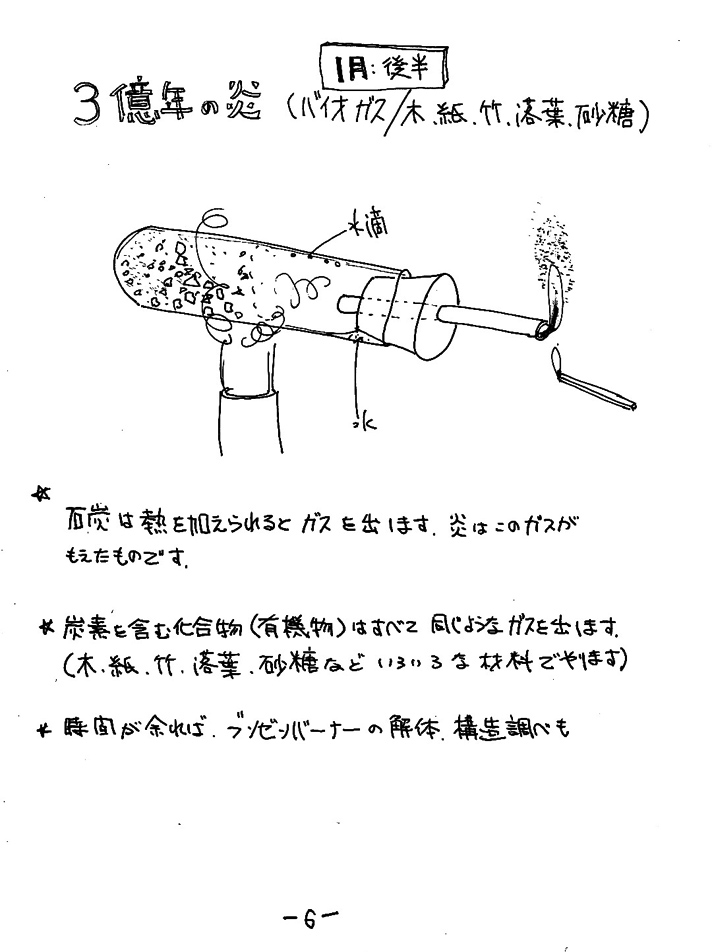 1月:後半
3億年の炎 (バイオガス/木、紙、竹、落葉、砂糖)
水滴
水
☆
石炭は熱を加えられるとガスを出します。炎はこのガスが
もえたものです。
* 炭素を含む化合物(有機物)はすべて同じようなガスを出します。
(木、紙、竹、落葉、砂糖などいろいろな材料でやります)
* 時間が余れば、ブンゼンバーナーの解体、構造調べも
-6-